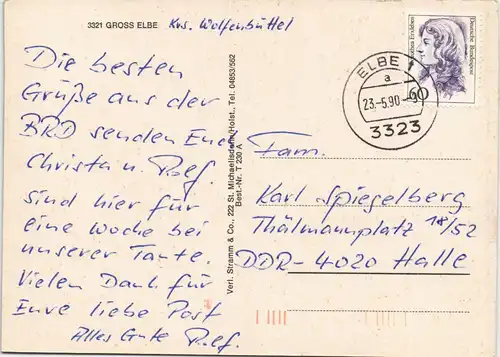 3321 GROSS ELBE Krs. Wolfenbüttel
Die besten
Grüße aus der
BRD senden Euch
Christa u. Rolf.
Sind hier für
eine Woche bei
unserer Tante.
Vielen Dank für
Eure liebe Post
Alles Gute Rolf.
Verl. Stramm & Co., 222 St. Michaelisdonn/Holst., Tel. 04853/562
Best.-Nr. T 230 A
ELBE 1
a
23.-5.90
3323
Deutsche Bundespost
60
Fam.
Karl Spiegelberg
Thälmannplatz 18/52
DDR-4020 Halle